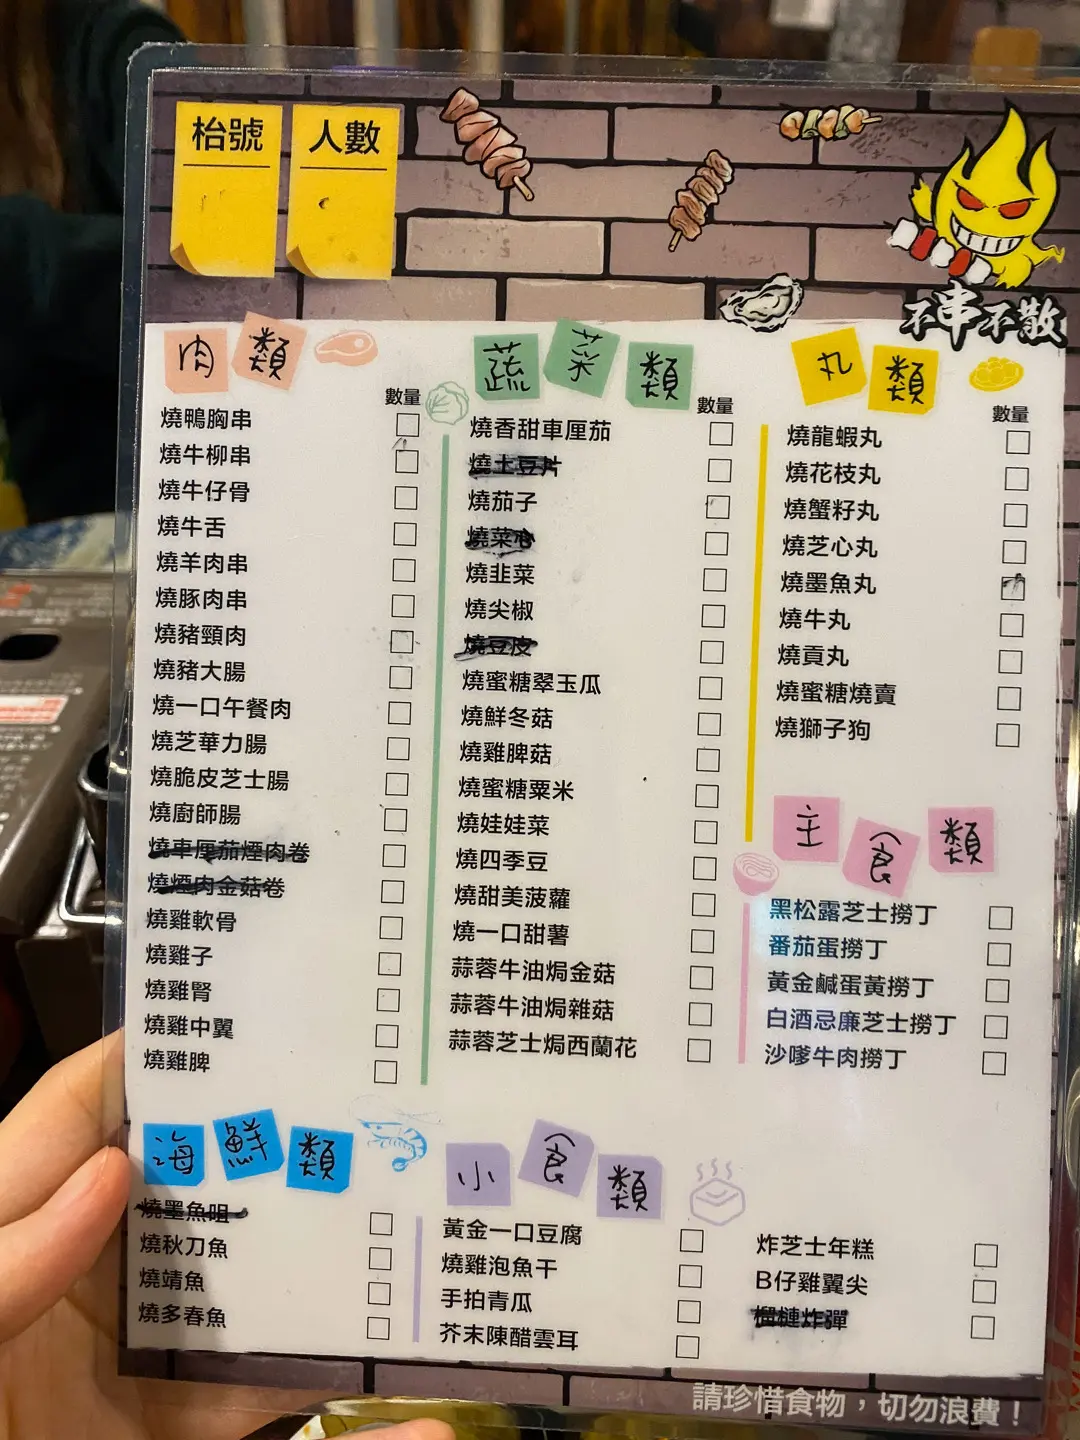 枱號
人數
不串不散
肉類
數量
燒鴨胸串
燒牛柳串
燒牛仔骨
燒牛舌
燒羊肉串
燒豚肉串
燒豬頸肉
燒豬大腸
燒一口午餐肉
燒芝華力腸
燒脆皮芝士腸
燒廚師腸
燒車厘茄煙肉卷
燒煙肉金菇卷
燒雞軟骨
燒雞子
燒雞腎
燒雞中翼
燒雞脾
蔬菜類
數量
燒香甜車厘茄
燒土豆片
燒茄子
燒菜心
燒韭菜
燒尖椒
燒豆皮
燒蜜糖翠玉瓜
燒鮮冬菇
燒雞脾菇
燒蜜糖粟米
燒娃娃菜
燒四季豆
燒甜美菠蘿
燒一口甜薯
蒜蓉牛油焗金菇
蒜蓉牛油焗雜菇
蒜蓉芝士焗西蘭花
丸類
數量
燒龍蝦丸
燒花枝丸
燒蟹籽丸
燒芝心丸
燒墨魚丸
燒牛丸
燒貢丸
燒蜜糖燒賣
燒獅子狗
主食類
黑松露芝士撈丁
番茄蛋撈丁
黃金鹹蛋黃撈丁
白酒忌廉芝士撈丁
沙嗲牛肉撈丁
海鮮類
燒墨魚咀
燒秋刀魚
燒鯖魚
燒多春魚
小食類
黃金一口豆腐
燒雞泡魚干
手拍青瓜
芥末陳醋雲耳
炸芝士年糕
B仔雞翼尖
榴槤炸彈
請珍惜食物，切勿浪費！